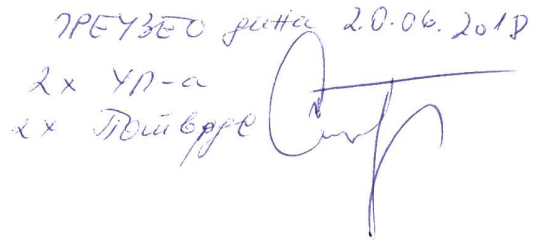 ПРЕУЗЕО дана 20.06.2018
2x УП-а
2x Потврде